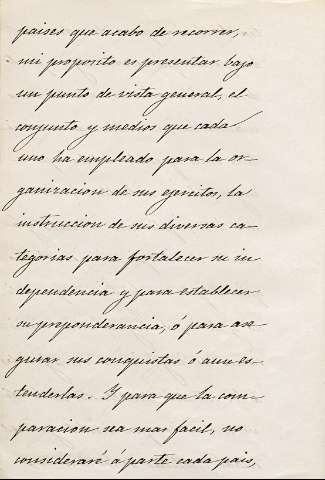 paises que acabo de recorrer,
mi proposito es presentar bajo
un punto de vista general, el
conjunto y medios que cada
uno ha empleado para la or-
ganizacion de sus ejercitos, la
instruccion de sus diversas ca-
tegorias para fortalecer su in
dependencia y para establecer
su preponderancia, ó para ase
gurar sus conquistas ó aun es-
tenderlas. Y para que la com-
paracion sea mas facil, no
consideraré á parte cada pais,